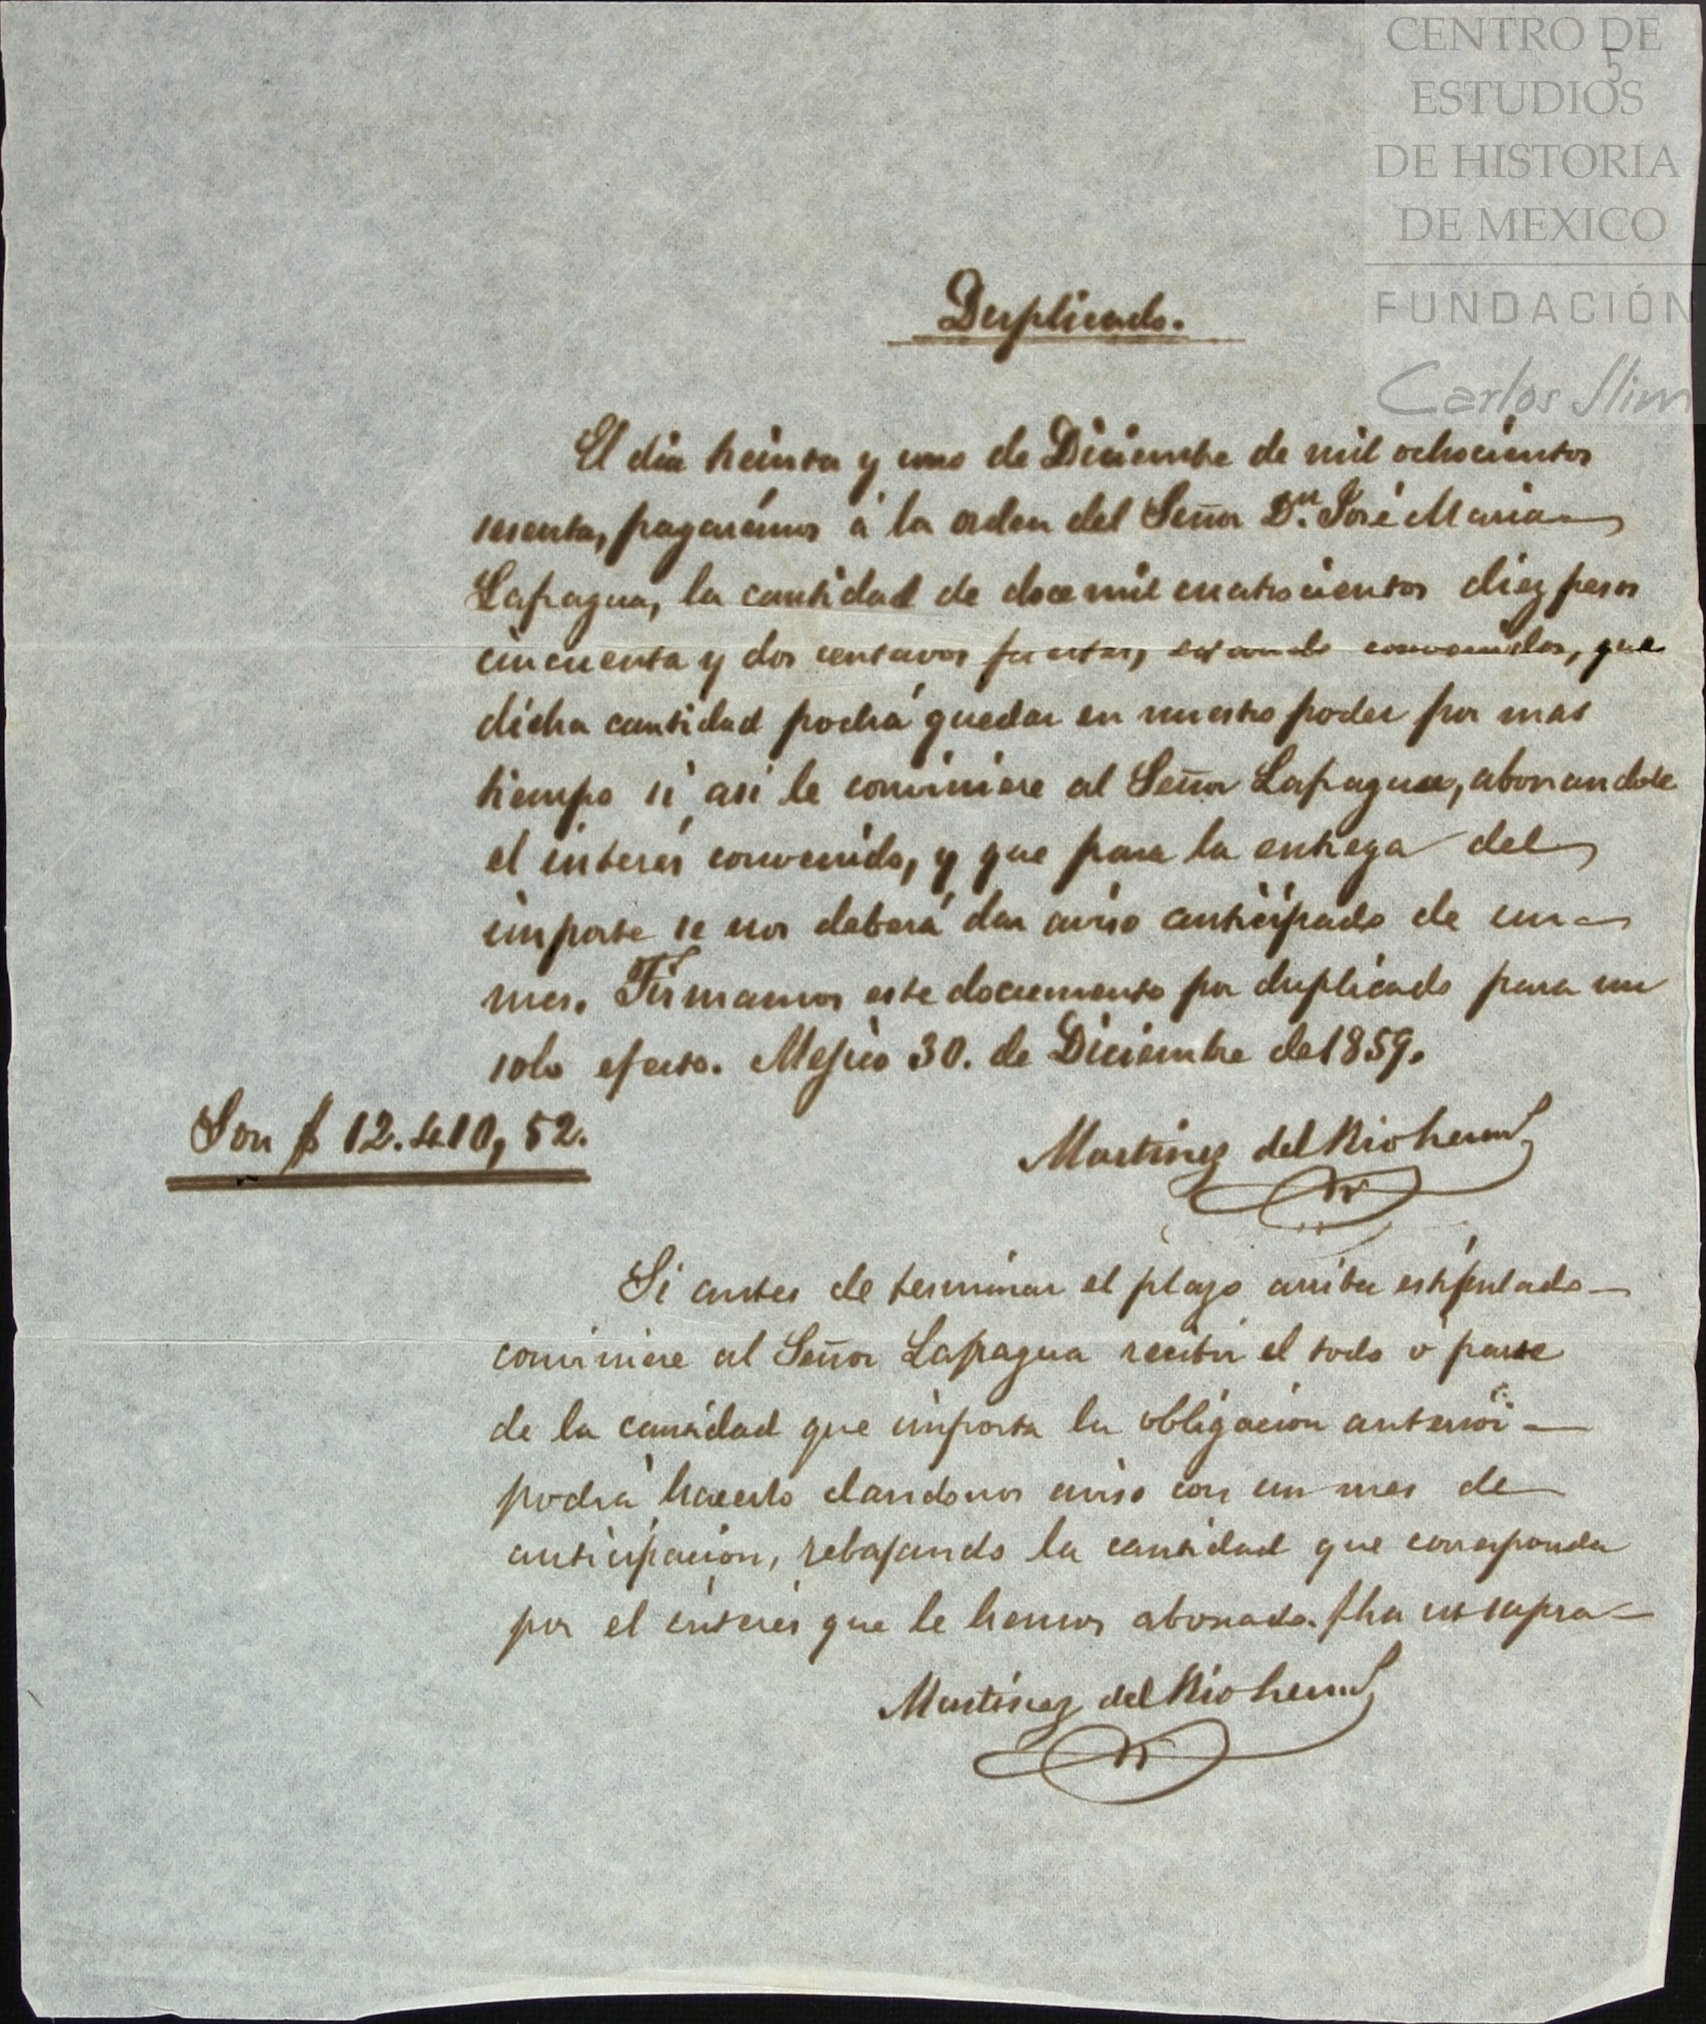 CENTRO DE
ESTUDIOS
DE HISTORIA
DE MEXICO
FUNDACIÓN
Carlos Slim
5
Duplicado.
El dia treinta y uno de Diciembre de mil ochocientos
sesenta, pagarémos á la orden del Señor Dn. José Maria
Lafragua, la cantidad de doce mil cuatrocientos diez pesos
cincuenta y dos centavos fuertes, estando convenidos, que
dicha cantidad podrá quedar en nuestro poder por mas
tiempo si asi le conviniere al Señor Lafragua, abonandole
el interés convenido, y que para la entrega del
importe se nos deberá dar aviso anticipado de un
mes. Firmamos este documento por duplicado para un
solo efecto. Mejico 30. de Diciembre de 1859.
Son $ 12.410, 52.
Martinez del Rio herms
Si antes de terminar el plazo arriba estipulado
conviniere al Señor Lafragua recibir el todo o parte
de la cantidad que importa la obligacion anterior
podrá hacerlo dandonos aviso con un mes de
anticipacion, rebajando la cantidad que corresponda
por el interés que le hemos abonado. fha ut supra
Martinez del Rio herms